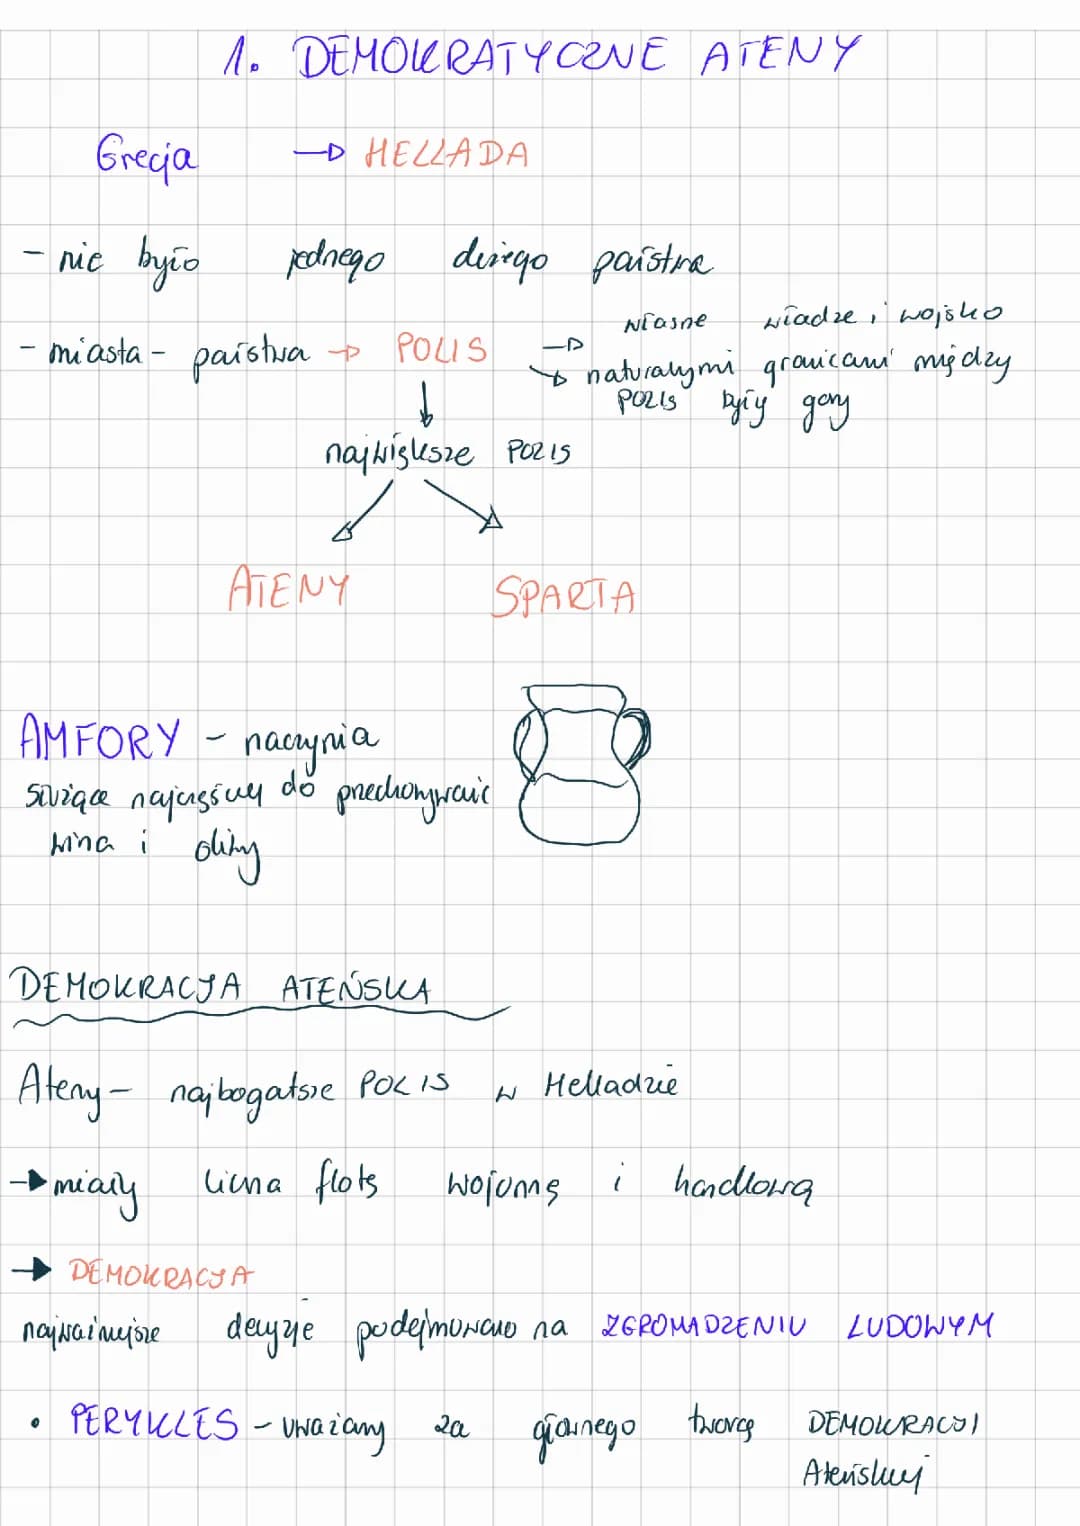 1. DEMOKRATYCZNE ATENY
Grecja → HELLADA
- nie było jednego dużego państwa
- miasta - państwa → POLIS → własne władze i wojsko
→ naturalnymi granicami między
POLIS były góry
↓
największe POLIS
ATENY SPARTA
AMFORY - naczynia
służące najczęściej do przechowywanie
wina i oliwy
DEMOKRACJA ATEŃSKA
Ateny - najbogatsze POLIS w Helladzie
→ miały liczna flotę wojenną i handlową
→ DEMOKRACJA
najważniejsze decyzje podejmowano na ZGROMADZENIU LUDOWYM
• PERYKLES - uważany za głównego twórcę DEMOKRACJI
Ateńskiej